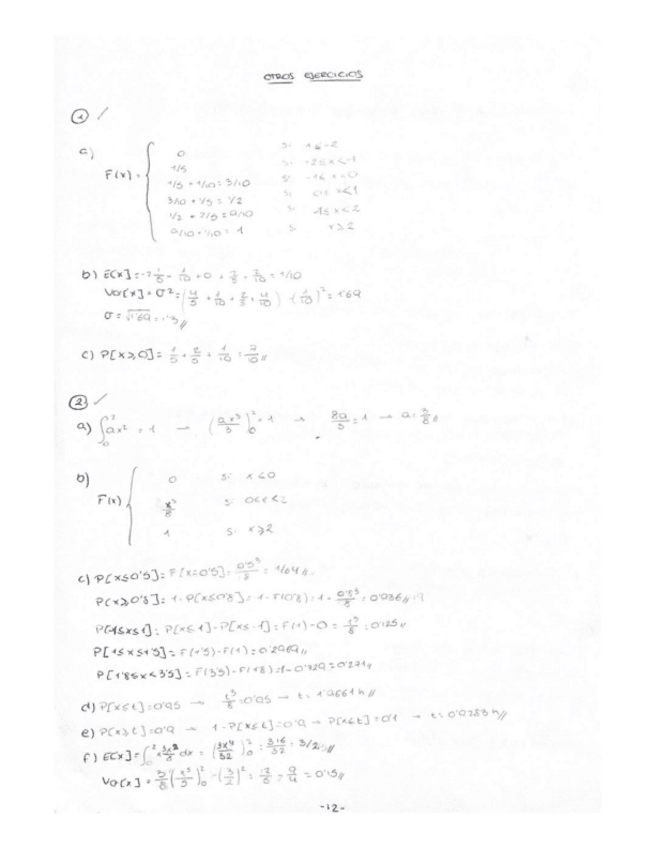 OTROS EJERCICIOS
1 /
a)
F(x) =
0 si x<-2
1/5 si -2≤x<-1
1/5 + 1/10 = 3/10 si
3/10 + 1/5 = 1/2 si 0≤x<1
1/2 + 2/5 = 9/10 si 1≤x<2
9/10 + 1/10 = 1 si x≥2
b) E[x] = -2 1/5 - 1/10 + 0 + 2/5 + 2/10 = 1/10
Var[x] = σ² = (4/5 + 1/10 + 2/5 + 4/10) - (1/10)² = 1'69
σ = √1'69 = 1'3 //
c) P[x≥0] = 1/5 + 2/5 + 1/10 = 7/10 //
2 /
a) ∫₀² ax² = 1 → (ax³/3)₀² = 1 → 8a/3 = 1 → a = 3/8 //
b)
F(x)
0 si x<0
x³/8 si 0≤x<2
1 si x≥2
c) P[x≤0'5] = F(x=0'5) = 0'5³/8 = 1/64 //
P[x≥0'8] = 1-P[x≤0'8] = 1-F(0'8) = 1- 0'8³/8 = 0'936 //
P[-1≤x≤1] = P[x≤1]-P[x≤-1] = F(1)-0 = 1³/8 = 0'125 //
P[1≤x≤1'5] = F(1'5)-F(1) = 0'2969 //
P[1'8≤x<3'5] = F(3'5)-F(1'8) = 1-0'729 = 0'271 //
d) P[x≤t] = 0'95 → t³/8 = 0'95 → t = 1'9661 h //
e) P[x≥t] = 0'9 → 1-P[x≤t] = 0'9 → P[x≤t] = 0'1 → t = 0'9283 h //
f) E[x] = ∫₀² x 3x²/8 dx = (3x⁴/32)₀² = 3·16/32 = 3/2 //
Var[x] = 3/8 (x⁵/5)₀² - (3/2)² = 12/5 - 9/4 = 0'15 //
-12-